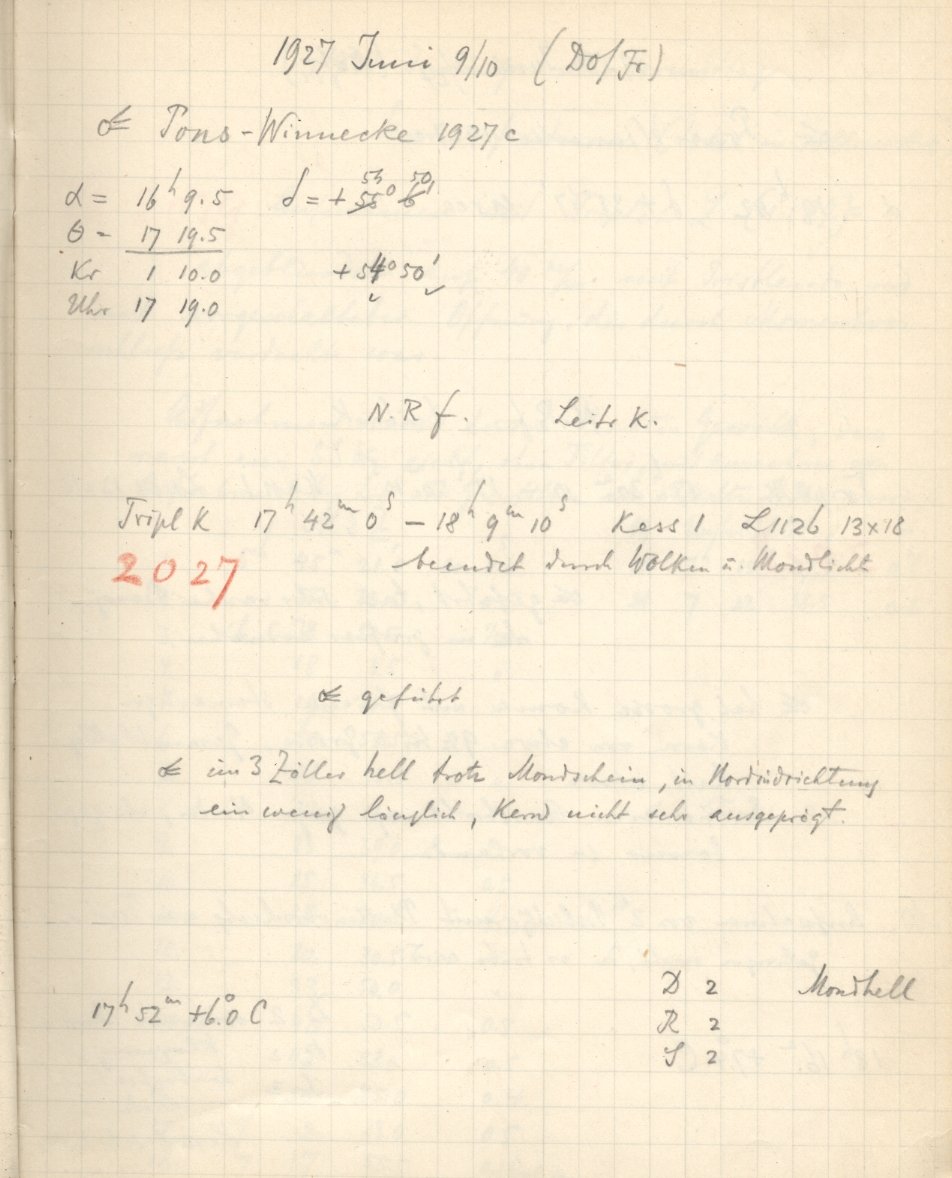 1927 Juni 9/10 (Do/Fr)
☄ Pons-Winnecke 1927 c
α = 16ʰ 9.5 δ = +55° 6'
54 50
θ = 17 19.5
Kr 1 10.0 +54° 50'
Uhr 17 19.0
N. R f. Leitr K.
Tripl K 17ʰ 42ᵐ 0ˢ – 18ʰ 9ᵐ 10ˢ Kass 1 L1126 13×18
2027 beendet durch Wolken u. Mondlicht
☄ geführt
☄ im 3 Zöller hell trotz Mondschein, in Nordsüdrichtung
ein wenig länglich, Kern nicht sehr ausgeprägt.
D 2 Mondhell
17ʰ 52ᵐ +6.0° C
R 2
S 2